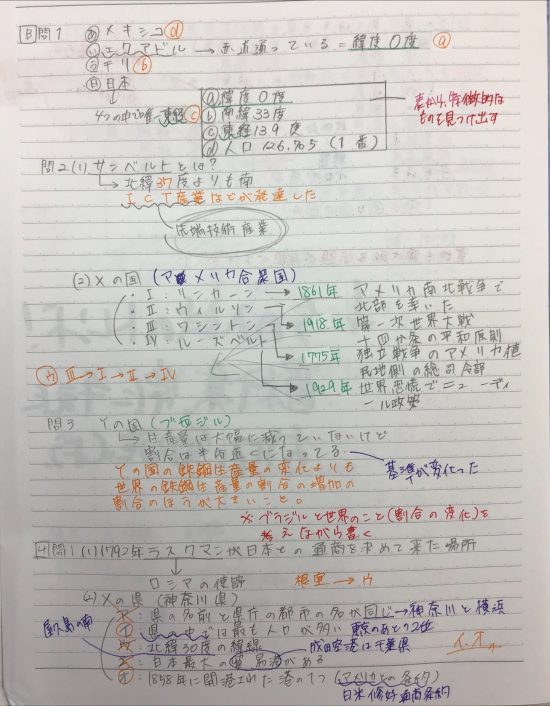 B 問1 あ メキシコ d
い エクアドル → 赤道通っている = 緯度0度 a
う チリ b
え 日本
4つの中で唯一東経 c
a 緯度0度
b 南緯33度
c 東経139度
d 人口126,765(1番)
表から、特徴的な
ものを見つけ出す
問2(1) サンベルトとは?
→ 北緯37度よりも南
ICT産業などが発達した
先端技術産業
(2) Xの国(アメリカ合衆国)
・Ⅰ:リンカーン → 1861年 アメリカ南北戦争で
北部を率いた
・Ⅱ:ウィルソン → 1918年 第一次世界大戦
十四か条の平和原則
・Ⅲ:ワシントン → 1775年 独立戦争のアメリカ植
民地側の総司令部
・Ⅳ:ルーズベルト → 1929年 世界恐慌でニューディ
ール政策
ウ Ⅲ→Ⅰ→Ⅱ→Ⅳ
問3 Yの国(ブラジル)
→ 生産量は大幅に減っていないけど
割合は半分近くになってる。
基準が変化った
Yの国の鉄鋼生産量の変化よりも
世界の鉄鋼生産量の割合の増加の
割合のほうが大きいこと。
※ブラジルと世界のこと(割合の変化)を
考えながら書く
4 問1(1) 1792年ラスクマンが日本との通商を求めて来た場所
ロシアの使節 根室→ウ
(2) Xの県(神奈川県)
ア:県の名前と県庁の都市の名が同じ → 神奈川と横浜
イ:県の中では最も人口が多い 東京のあと2位
屋久島の南
ウ:北緯30度の緯線 成田空港は千葉県
エ:日本最大の貿易港がある
イ.オ
オ:1858年に開港された港の1つ(アメリカとの条約)
日米修好通商条約